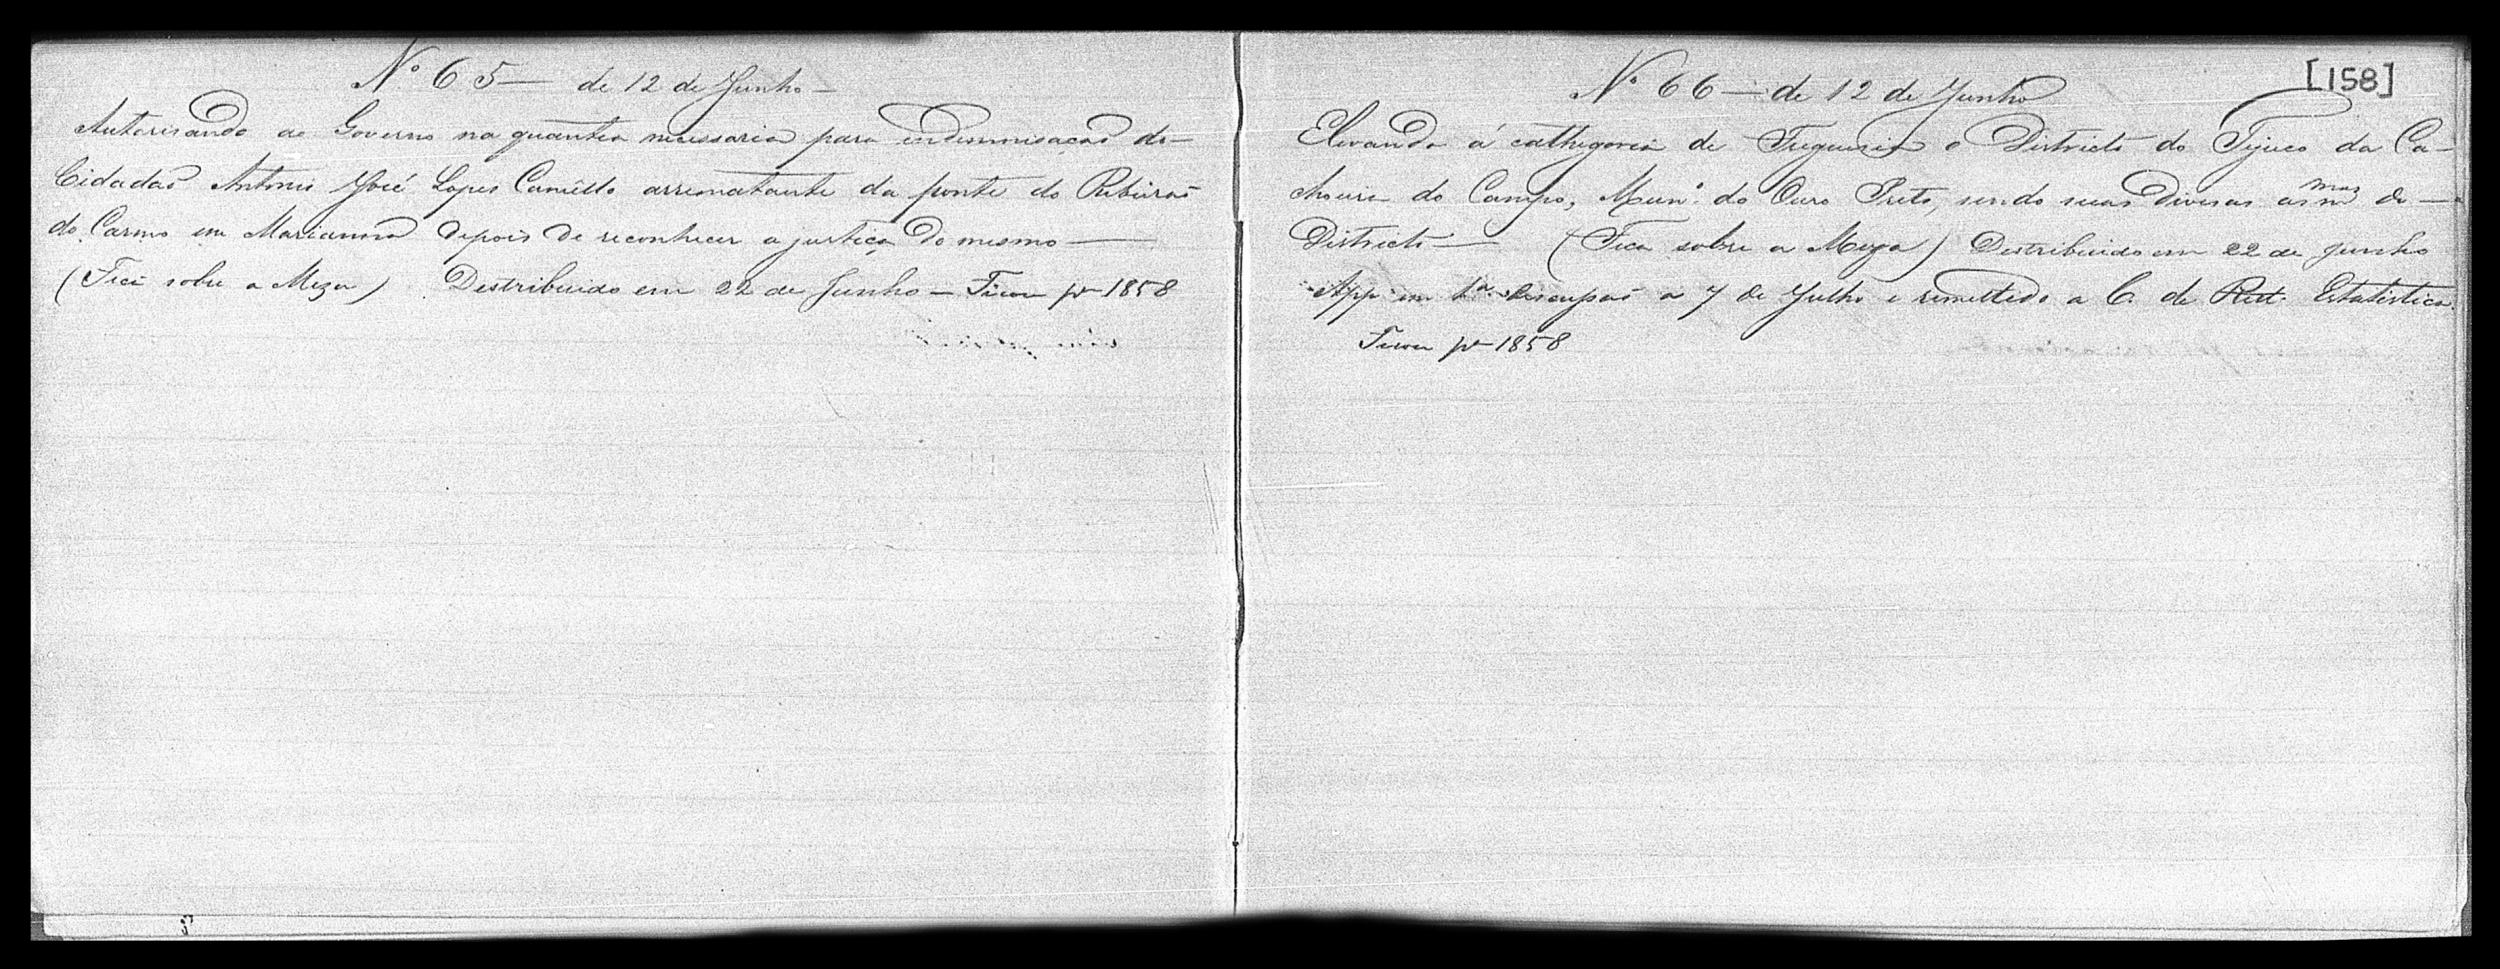 Nº 65 — de 12 de Junho —
Autorisando ao Governo na quantia necessaria para indemnisação do
Cidadão Antonio José Lopes Camêllo arrematante da ponte do Ribeirão
do Carmo em Marianna depois de reconhecer a justiça do mesmo —
(Fica sobre a Meza) Distribuido em 22 de Junho — Ficou pª 1858
[158]
Nº 66 — de 12 de Junho
Elevando á cathegoria de Freguesia o Districto do Tijuco da Ca-
choeira do Campo, Munº do Ouro Preto, sendo suas divisas as mmas do
Districto — (Fica sobre a Meza) Distribuido em 22 de Junho
App em 1ª discussão a 7 de Julho e remettido a C. de Estatistica
Ficou pª 1858